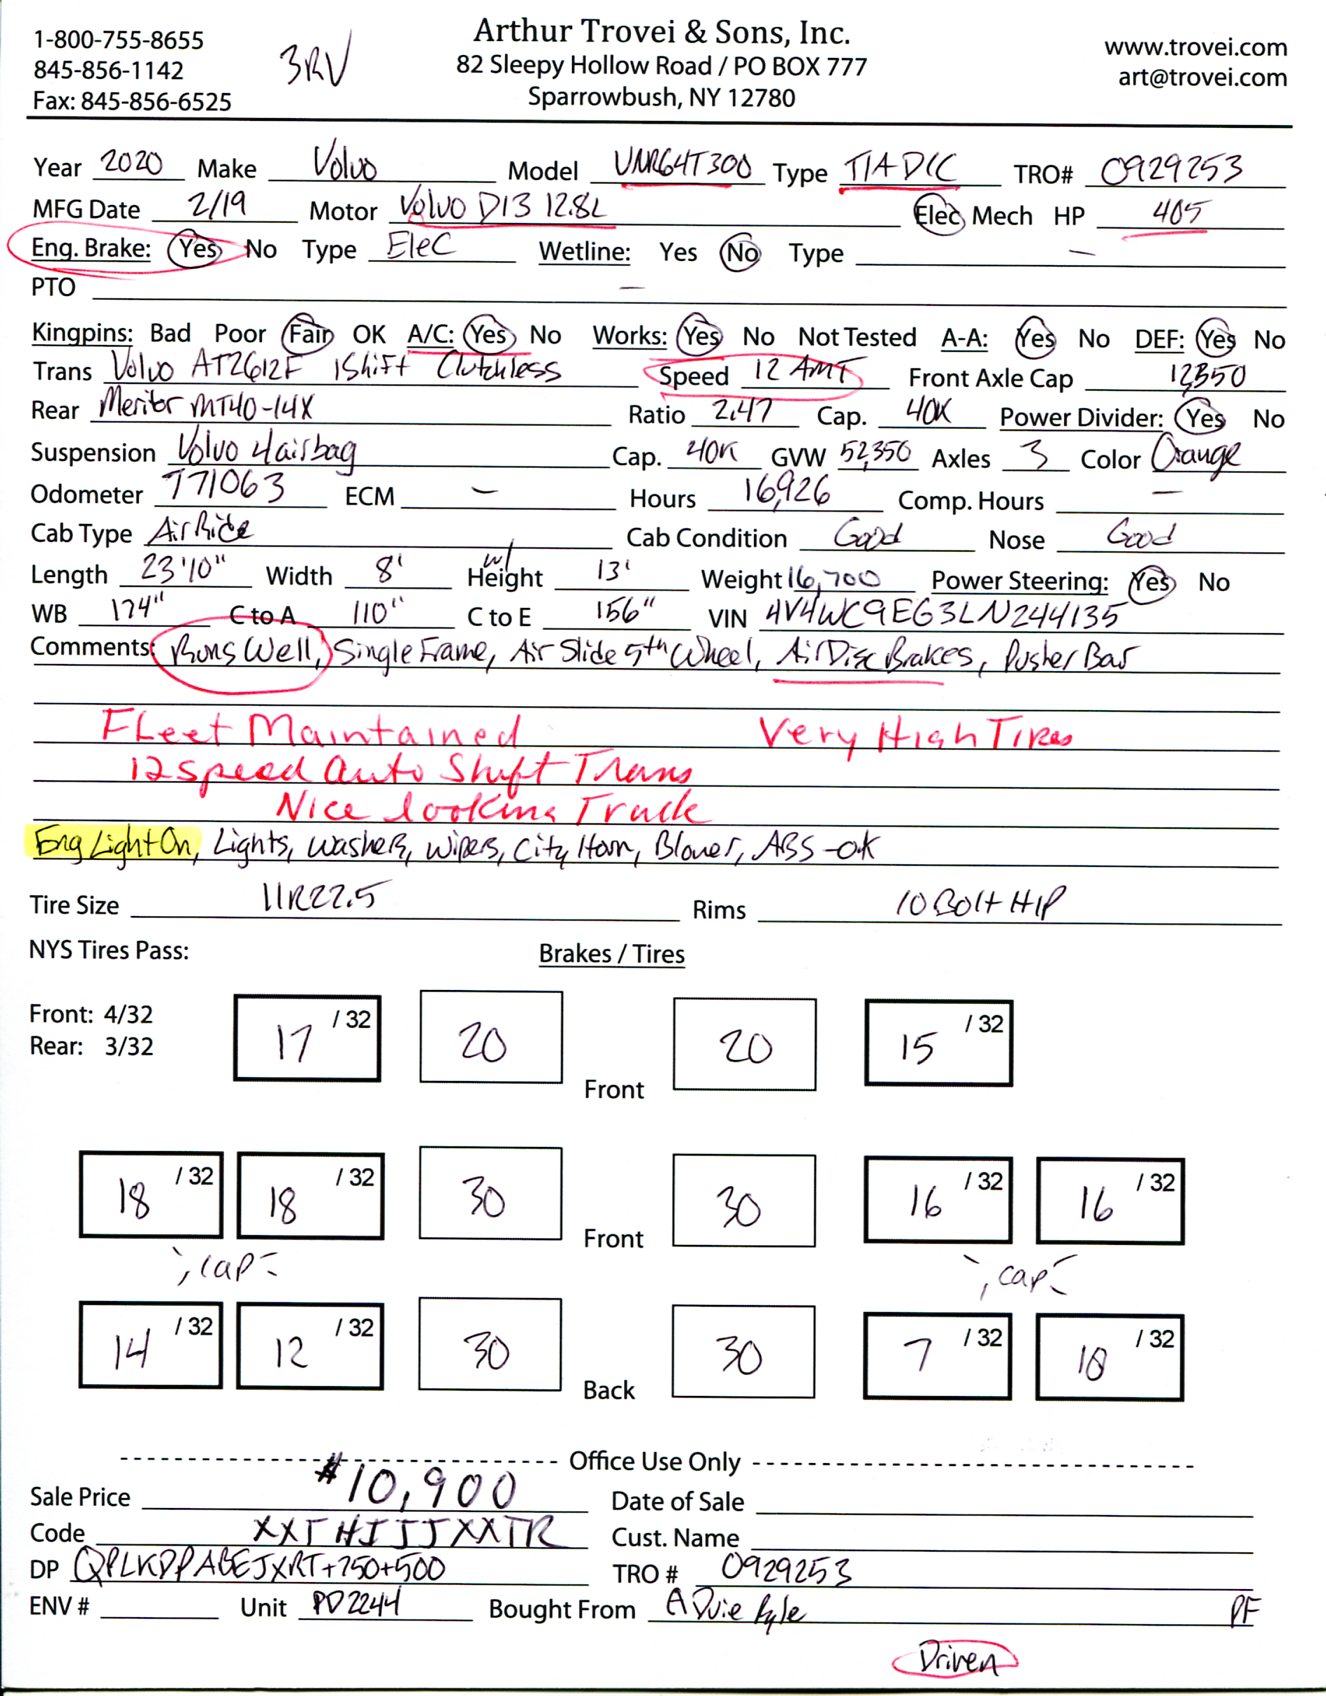 1-800-755-8655
845-856-1142
Fax: 845-856-6525
3RV
Arthur Trovei & Sons, Inc.
82 Sleepy Hollow Road / PO BOX 777
Sparrowbush, NY 12780
www.trovei.com
art@trovei.com
Year 2020 Make Volvo Model VNR64T300 Type T/A D/C TRO# 0929253
MFG Date 2/19 Motor Volvo D13 12.8L Elec Mech HP 405
Eng. Brake: Yes No Type Elec Wetline: Yes No Type —
PTO —
Kingpins: Bad Poor Fair OK A/C: Yes No Works: Yes No Not Tested A-A: Yes No DEF: Yes No
Trans Volvo AT2612F IShift Clutchless Speed 12 AMT Front Axle Cap 12,350
Rear Meritor MT40-14X Ratio 2.47 Cap. 40K Power Divider: Yes No
Suspension Volvo 4 airbag Cap. 40K GVW 52,350 Axles 3 Color Orange
Odometer 771063 ECM — Hours 16,926 Comp. Hours —
Cab Type Air Ride Cab Condition Good Nose Good
Length 23'10" Width 8' w/ Height 13' Weight 16,700 Power Steering: Yes No
WB 174" C to A 110" C to E 156" VIN 4V4WC9EG3LN244135
Comments: Runs Well, Single Frame, Air Slide 5th Wheel, Air Disc Brakes, Pusher Bar
Fleet Maintained Very High Tires
12 speed auto Shift Trans
Nice looking Truck
Eng Light On, Lights, Washers, Wipers, City Horn, Blower, ABS -OK
Tire Size 11R22.5 Rims 10 Bolt H/P
NYS Tires Pass: Brakes / Tires
Front: 4/32
Rear: 3/32
17 /32 20 Front 20 15 /32
18 /32 18 /32 30 Front 30 16 /32 16 /32
cap cap
14 /32 12 /32 30 Back 30 7 /32 10 /32
Office Use Only
Sale Price $10,900 Date of Sale
Code XXTHIJJJXXTR Cust. Name
DP QPLKDPABEJXRT+750+500 TRO # 0929253
ENV # Unit PD2244 Bought From A Duie Pyle PF
Driven